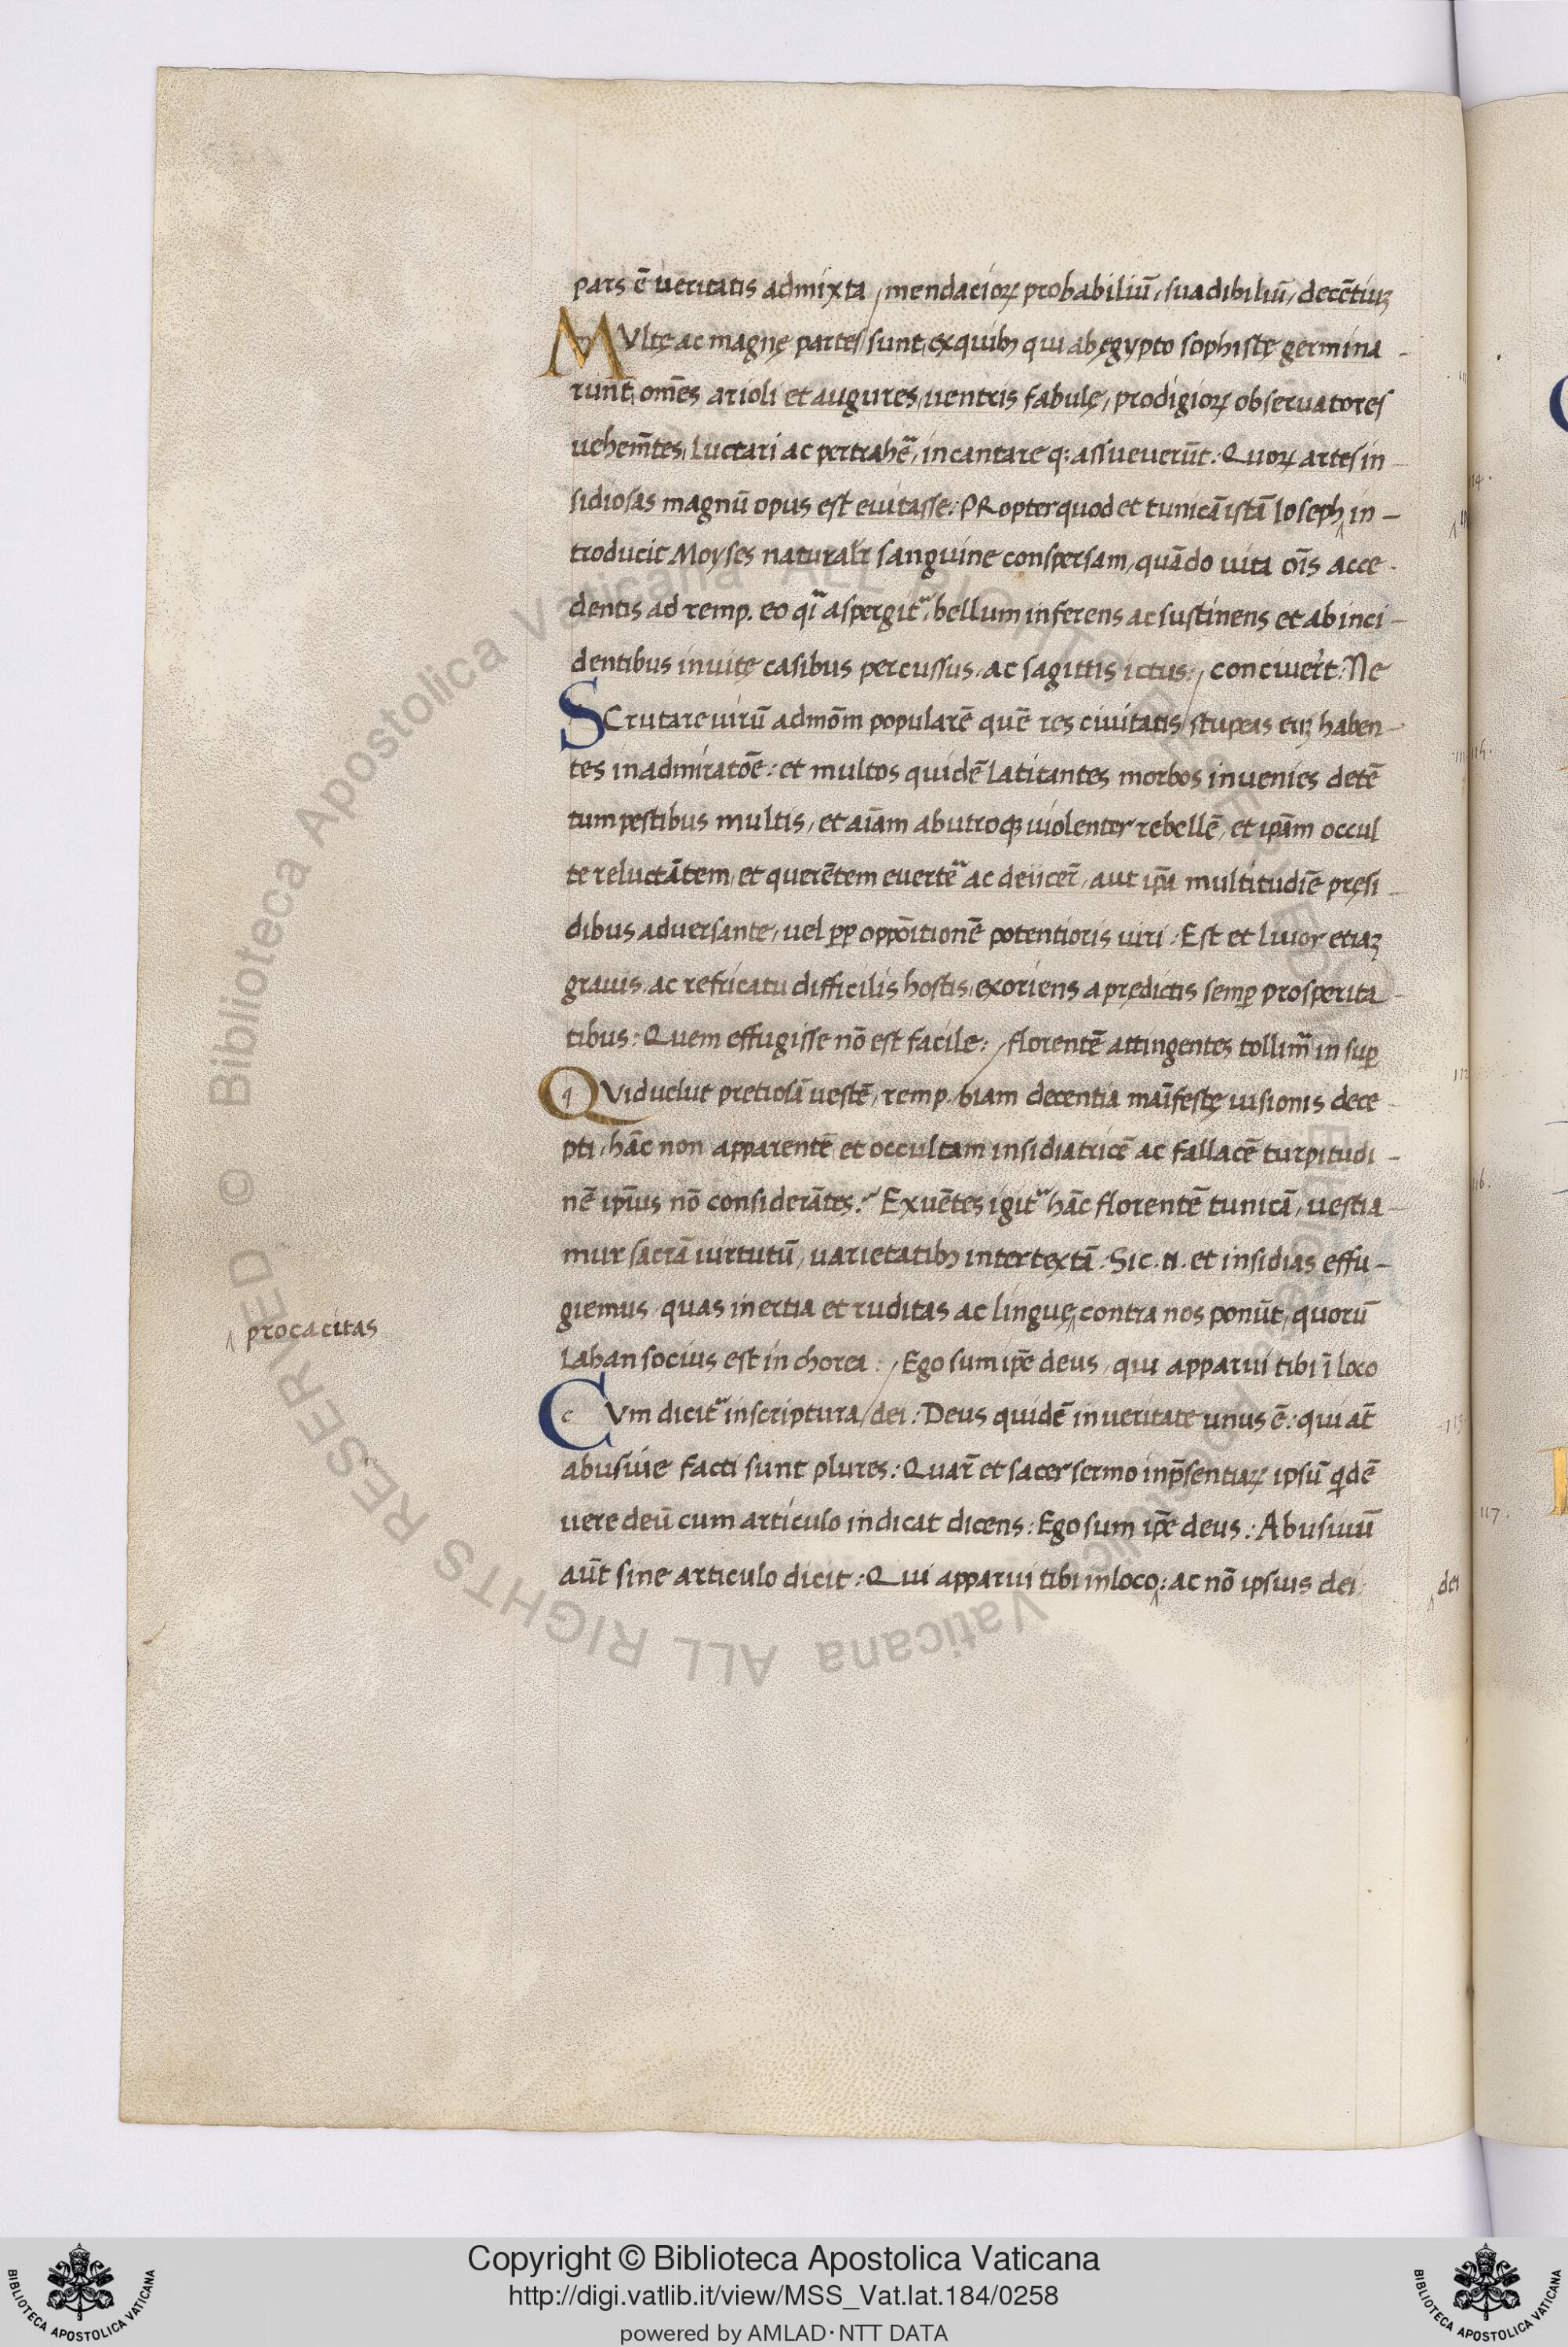 pars ē ueritatis admixta / mendacioꝝ probabiliū, suadibiliū, decētiuꝫ
MVltę ac magnę partes sunt, ex quibꝫ qui ab ęgypto sophistę germina-
runt, om̄es arioli et augures, uentris fabulę, prodigioꝝ obseruatores
uehem̄tes, Luctari ac pertrahe᷑, incantare qꝫ assueuerūt: Quoꝝ artes in-
sidiosas magnū opus est euitasse: PRopter quod et tunicā istā Ioseph ‸ in-
troducit Moyses naturalr̄ sanguine conspersam, quādo uita oīs acce-
dentis ad remp. eo qͥ aspergit᷑, bellum inferens ac sustinens et ab inci-
dentibus in uitę casibus percussus, ac sagittis ictus: / conciuer̄t: Ne
SCrutare uirū admōm popularē quē res ciuitatis / stupeas eiꝰ haben-
tes in admiratōe: et multos quidē latitantes morbos inuenies detē
tum pestibus multis, et aīam ab utroqꝫ uiolenter rebellē, et ip̄am occul
te reluctātem, et querētem euerte᷑ ac deiicer̄, aut ip̄a multitudīe pręsi-
dibus aduersante, uel ꝓp oppōitionē potentioris uiri: Est et liuor etiaꝫ
grauis, ac refricatu difficilis hostis, exoriens a prędictis semꝑ prosperita-
tibus: Quem effugisse nō est facile: / florentē attingentes tollim᷑ in suꝑ
QVid uelut pretiosā uestē, remp. / biam decentia maīfestę uisionis dece-
pti, hāc non apparentē et occultam insidiatricē ac fallacē turpitudi-
nē ipīus nō considerātes: Exuētes igit᷑ hāc florentē tunicā, uestia-
mur sacrā uirtutū, uarietatibꝫ intertextā: Sic .n. et insidias effu-
giemus, quas inertia et ruditas ac linguę ‸ contra nos ponūt, quorū
‸ procacitas
Laban socius est in chorea: / Ego sum ip̄e deus, qui apparui tibi ī loco
CVm dicit᷑ in scriptura / dei: Deus quidē in ueritate unus ē: qui at̄
abusiue facti sunt plures: Quar̄ et sacer sermo in p̄sentiaꝝ ipsū qͥdē
uere deū cum articulo indicat dicens: Ego sum ip̄e deus: Abusiuū
aūt sine articulo dicit: Qui apparui tibi in loco ‸: ac nō ipsius dei
‸ dei
14.
115.
116.
117.
Biblioteca Apostolica Vaticana ALL RIGHTS RESERVED ©
Copyright © Biblioteca Apostolica Vaticana
http://digi.vatlib.it/view/MSS_Vat.lat.184/0258
powered by AMLAD·NTT DATA
BIBLIOTECA APOSTOLICA VATICANA
BIBLIOTECA APOSTOLICA VATICANA